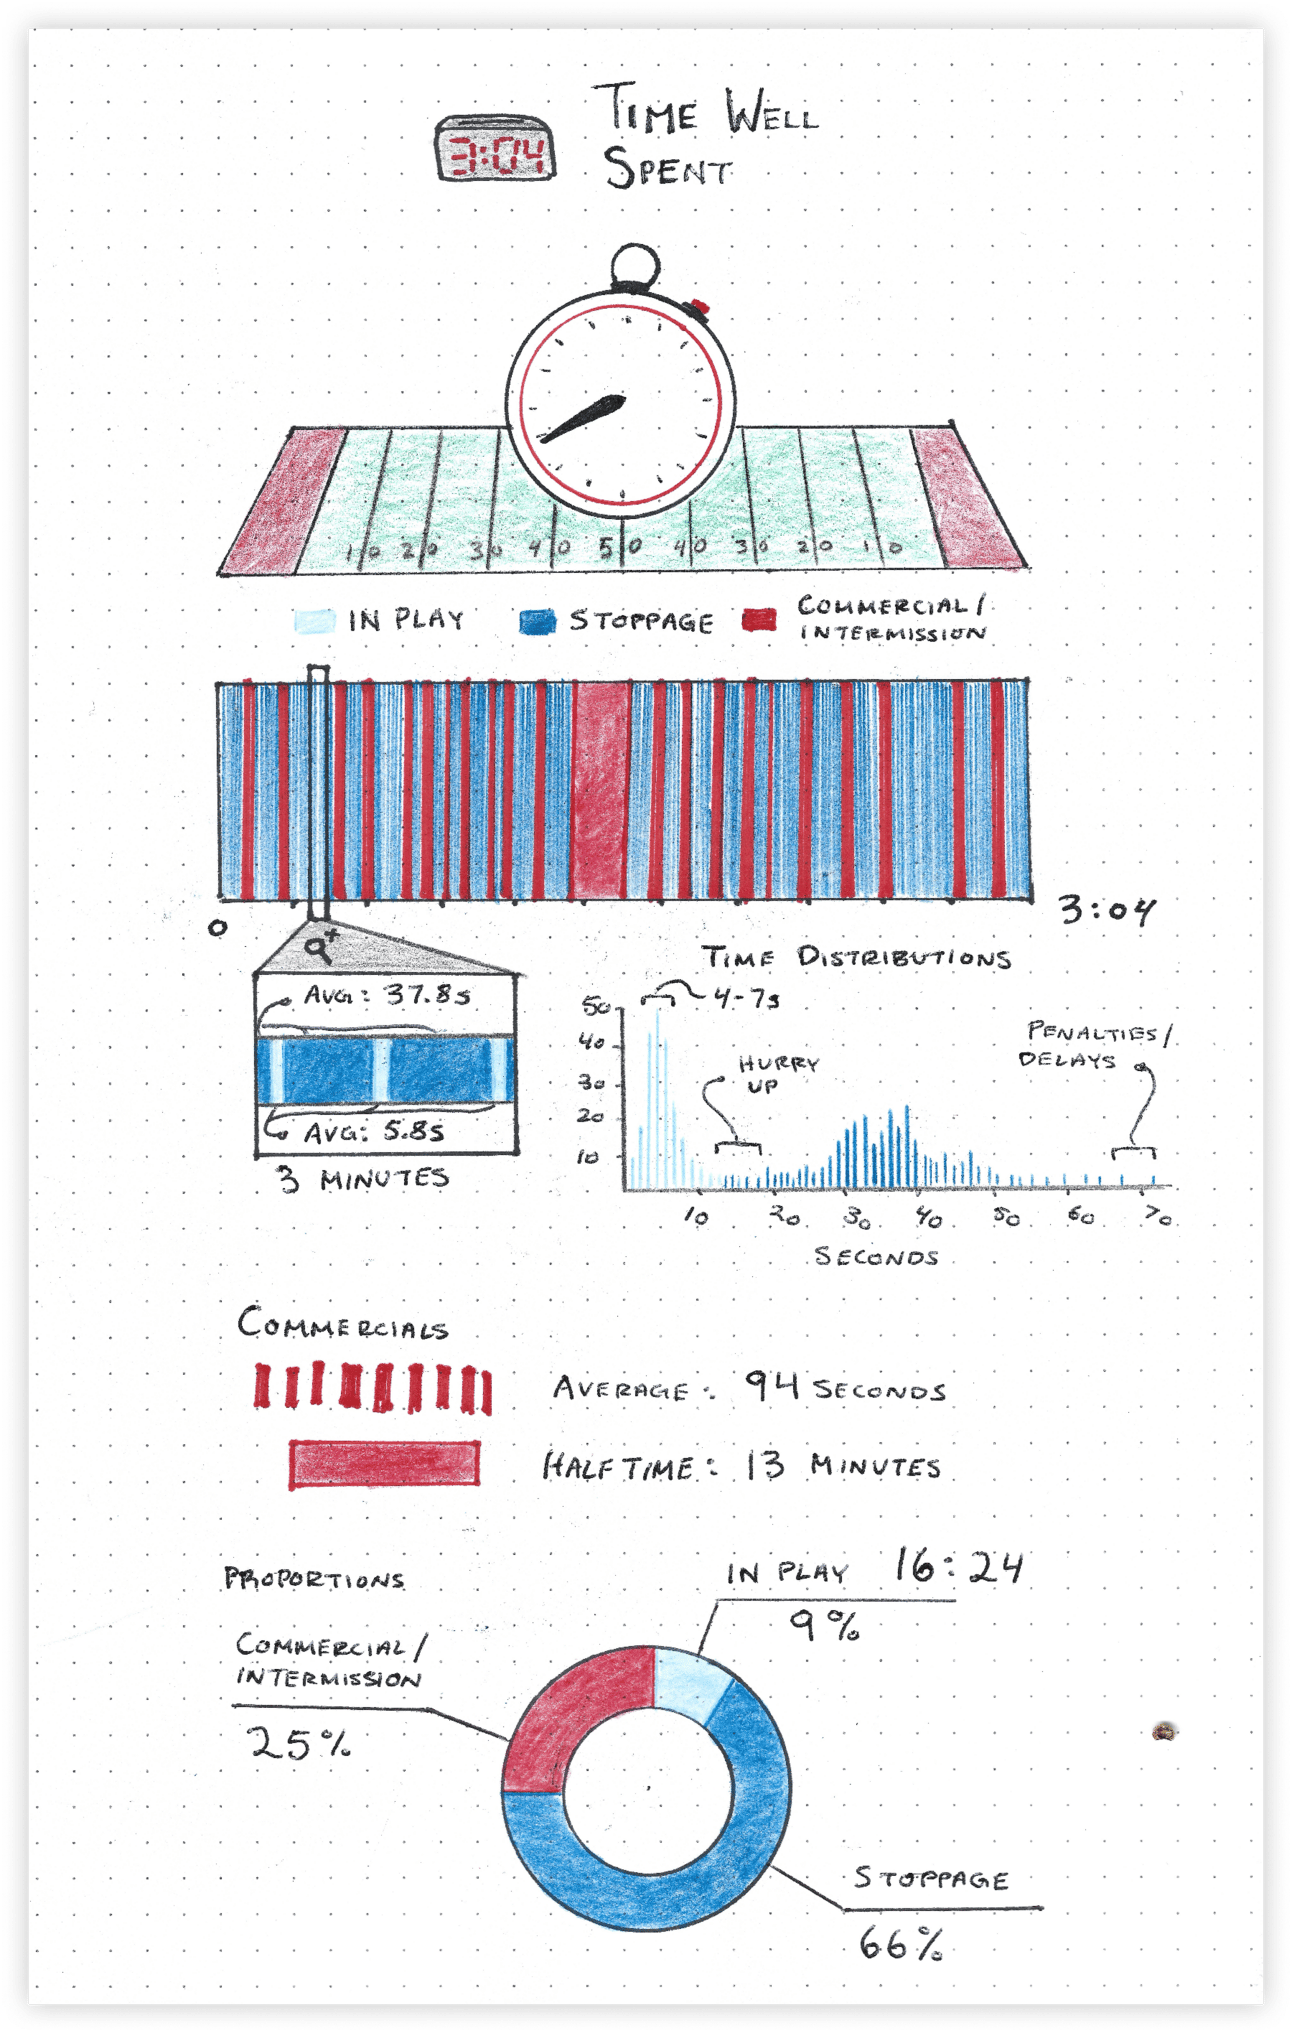 3:04
TIME WELL
SPENT
10 20 30 40 50 40 30 20 10
IN PLAY
STOPPAGE
COMMERCIAL/
INTERMISSION
0
3:04
AVG: 37.8s
AVG: 5.8s
3 MINUTES
TIME DISTRIBUTIONS
4-7s
50
40
30
20
10
HURRY
UP
PENALTIES/
DELAYS
10 20 30 40 50 60 70
SECONDS
COMMERCIALS
AVERAGE: 94 SECONDS
HALFTIME: 13 MINUTES
PROPORTIONS
IN PLAY 16:24
9%
COMMERCIAL/
INTERMISSION
25%
STOPPAGE
66%